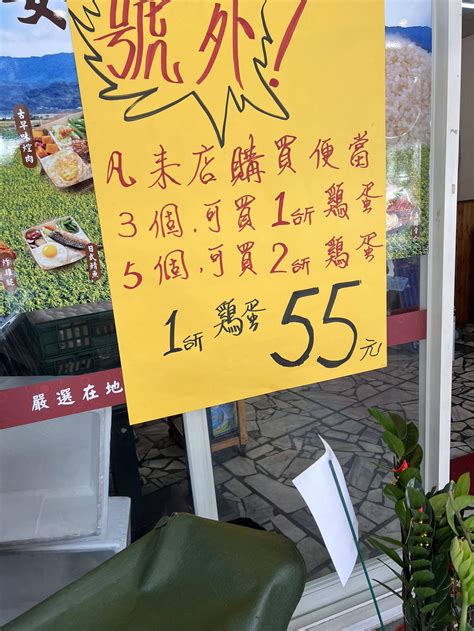 號外!
凡來店購買便當
3個,可買1斤鷄蛋
5個,可買2斤鷄蛋
1斤鷄蛋55元
古早味控肉
日式鯖魚
嚴選在地